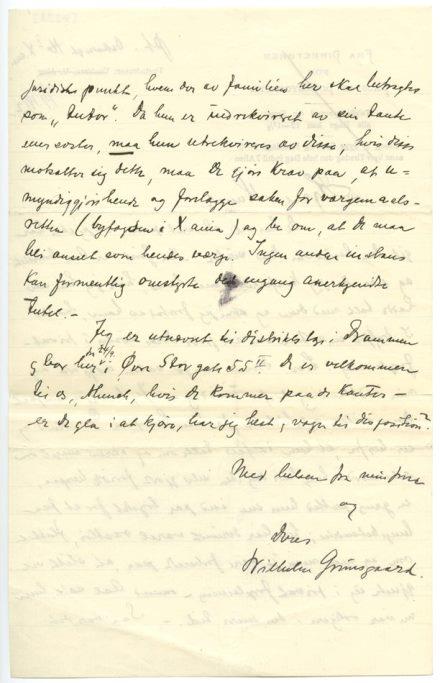 juridisk punkt, hvem der av familien her skal betragtes
som "Tutor". Da hun er indrekvireret av sin Tante
eller søster, maa hun utrekvireres av disse, hvis disse
motsætter sig dette, maa De gjøre Krav paa, at u-
myndiggjøre hende og forelægge saken for værgemaals-
retten (byfogden i X ania) og be om, at De maa
bli anseet som hendes værge. Ingen anden instans
kan formentlig omstyrte det engang anerkjendte
Tutel. -
Jeg er utnævnt til distriktslæge i Drammen
og bor her i Øvre Storgate 55 II. De er velkommen
til os, Munch, hvis De kommer paa de Kanter -
er De gla i at kjøre, har jeg hest, vogn til disposition.
Med hilsen fra min frue
og
Deres
Wilhelm Grimsgaard.